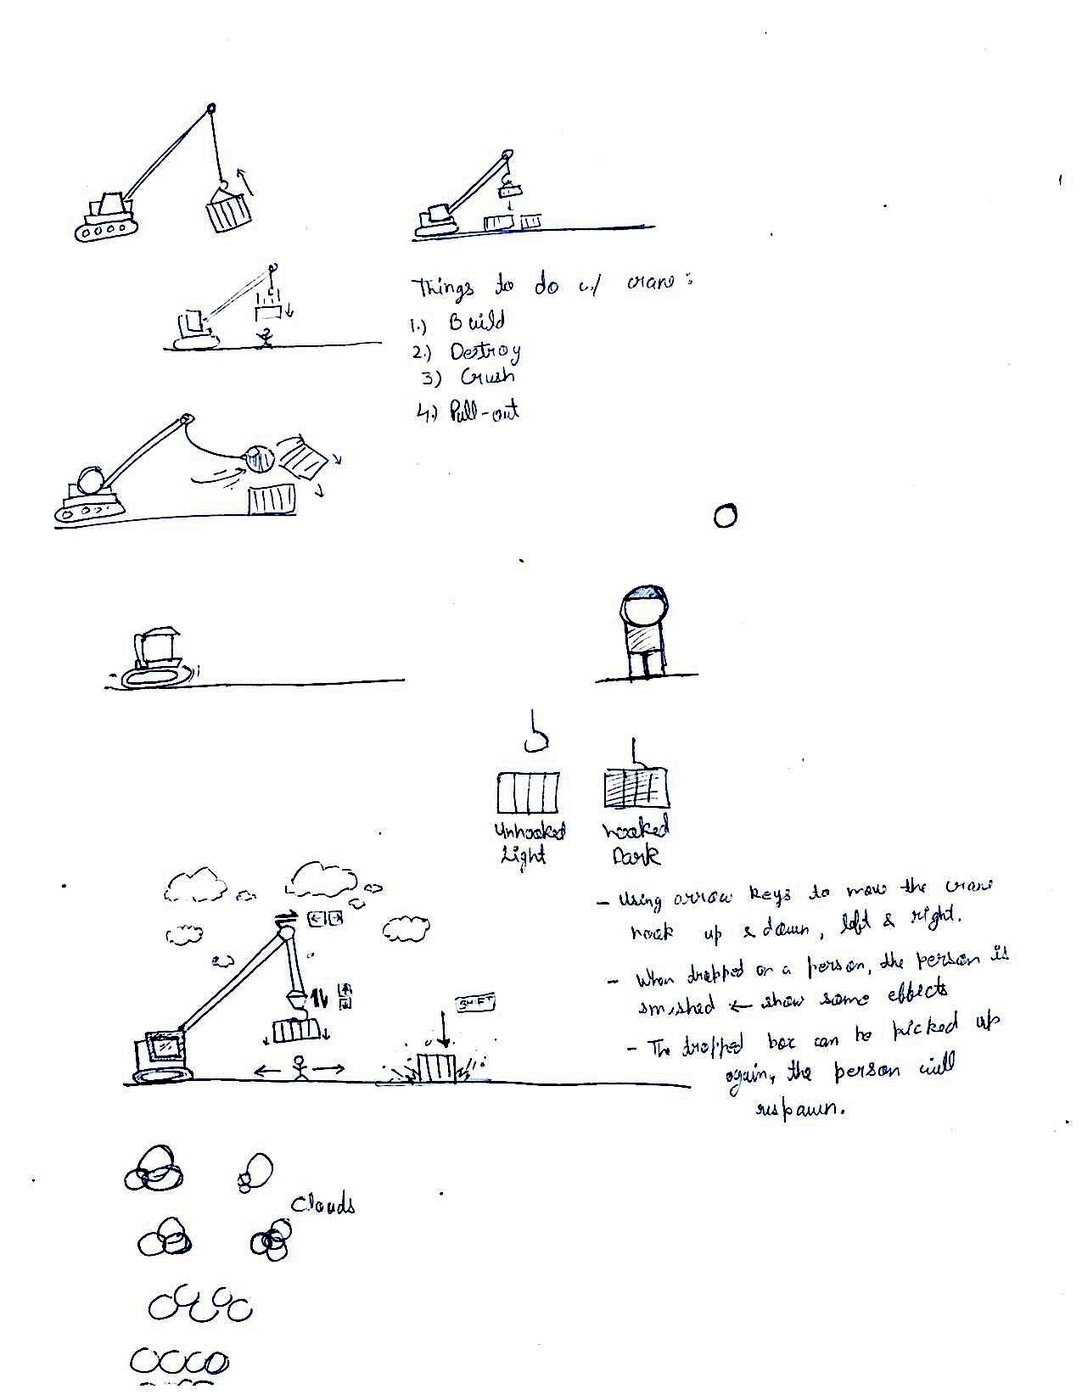 Things to do w/ crane:
1.) Build
2.) Destroy
3) Crush
4.) Pull-out
Unhooked
Light
hooked
Dark
- Using arrow keys to move the crane
hook up & down, left & right.
- When dropped on a person, the person is
smished ← show some effects
- The dropped box can be picked up
again, the person will
respawn.
SHIFT
Clouds